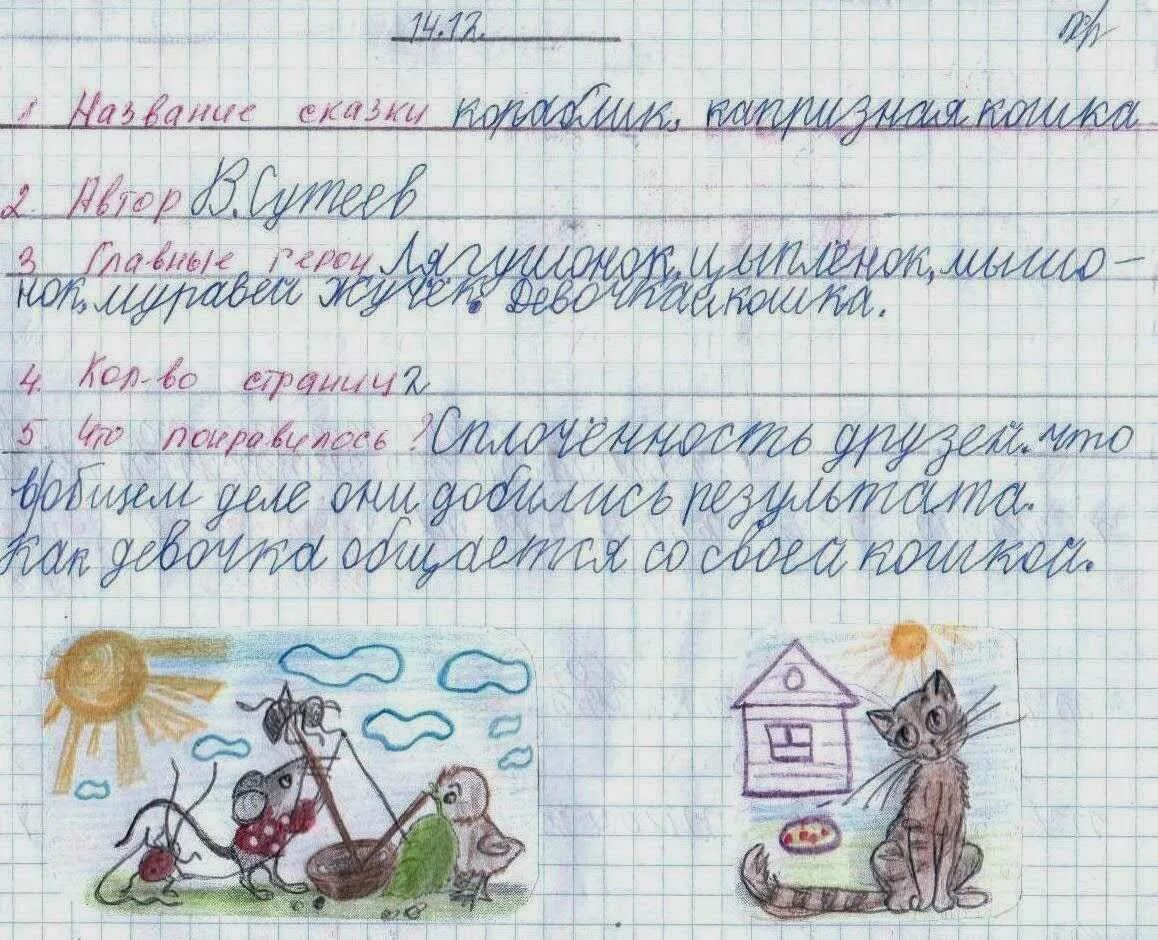 14.12.
1 Название сказки кораблик, капризная кошка
2. Автор В.Сутеев
3 Главные герои Лягушонок, цыплёнок, мышо-
нок, муравей жучек. Девочка и кошка.
4. Кол-во страниц 2
5. Что понравилось? Сплочённость друзей. что
в общем деле они добились результата.
Как девочка общается со своей кошкой.